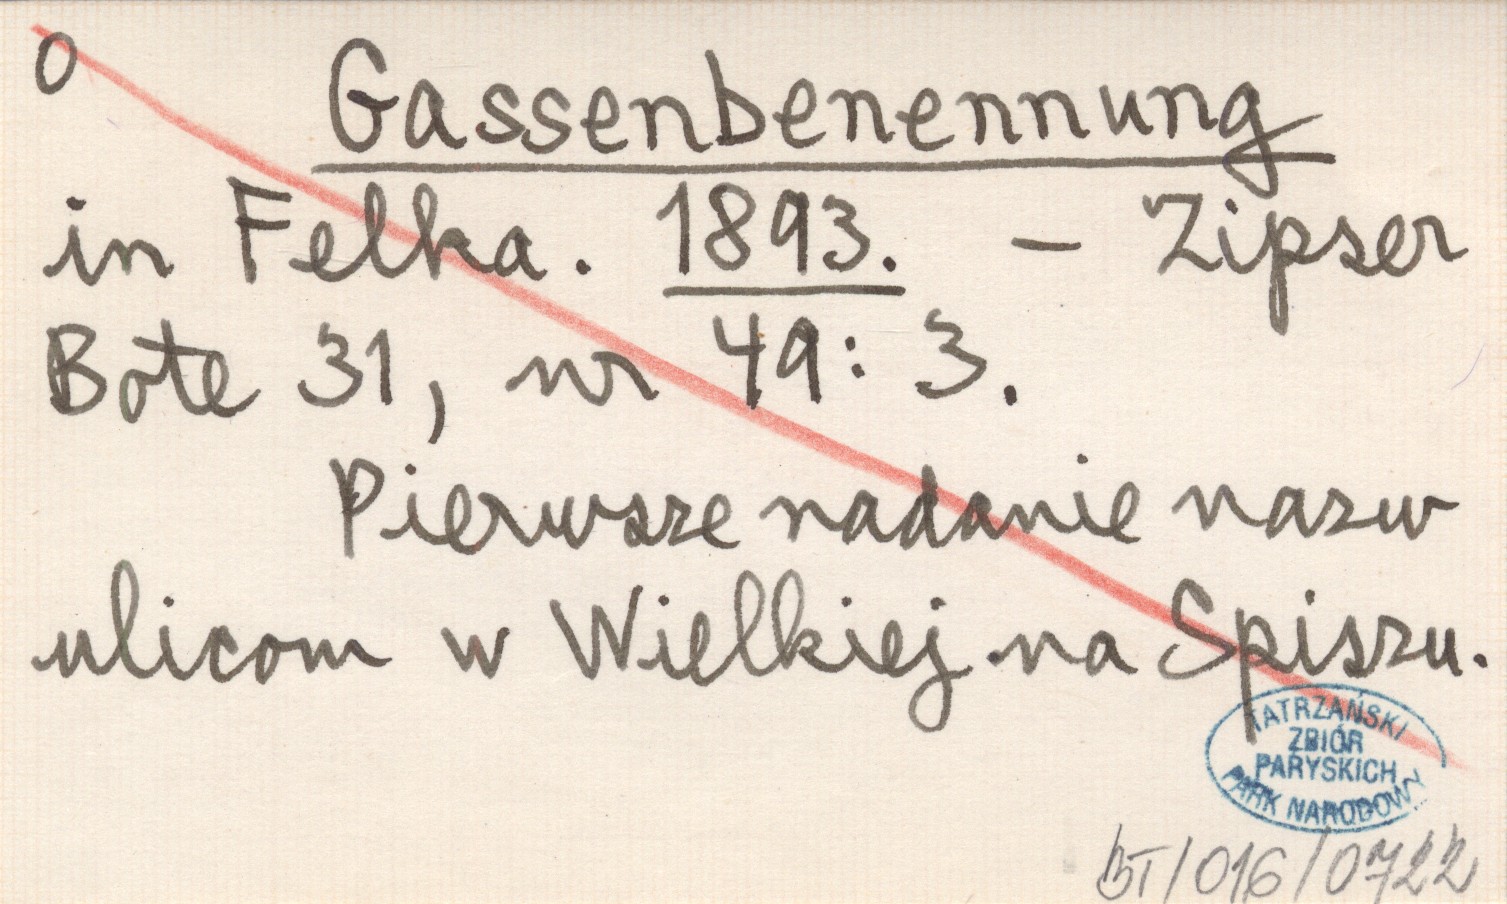 O Gassenbenennung
in Felka. 1893. - Zipser
Bote 31, nr 49: 3.
Pierwsze nadanie nazw
ulicom w Wielkiej na Spiszu.
TATRZAŃSKI
ZBIÓR
PARYSKICH
PARK NARODOWY
BT/016/0722